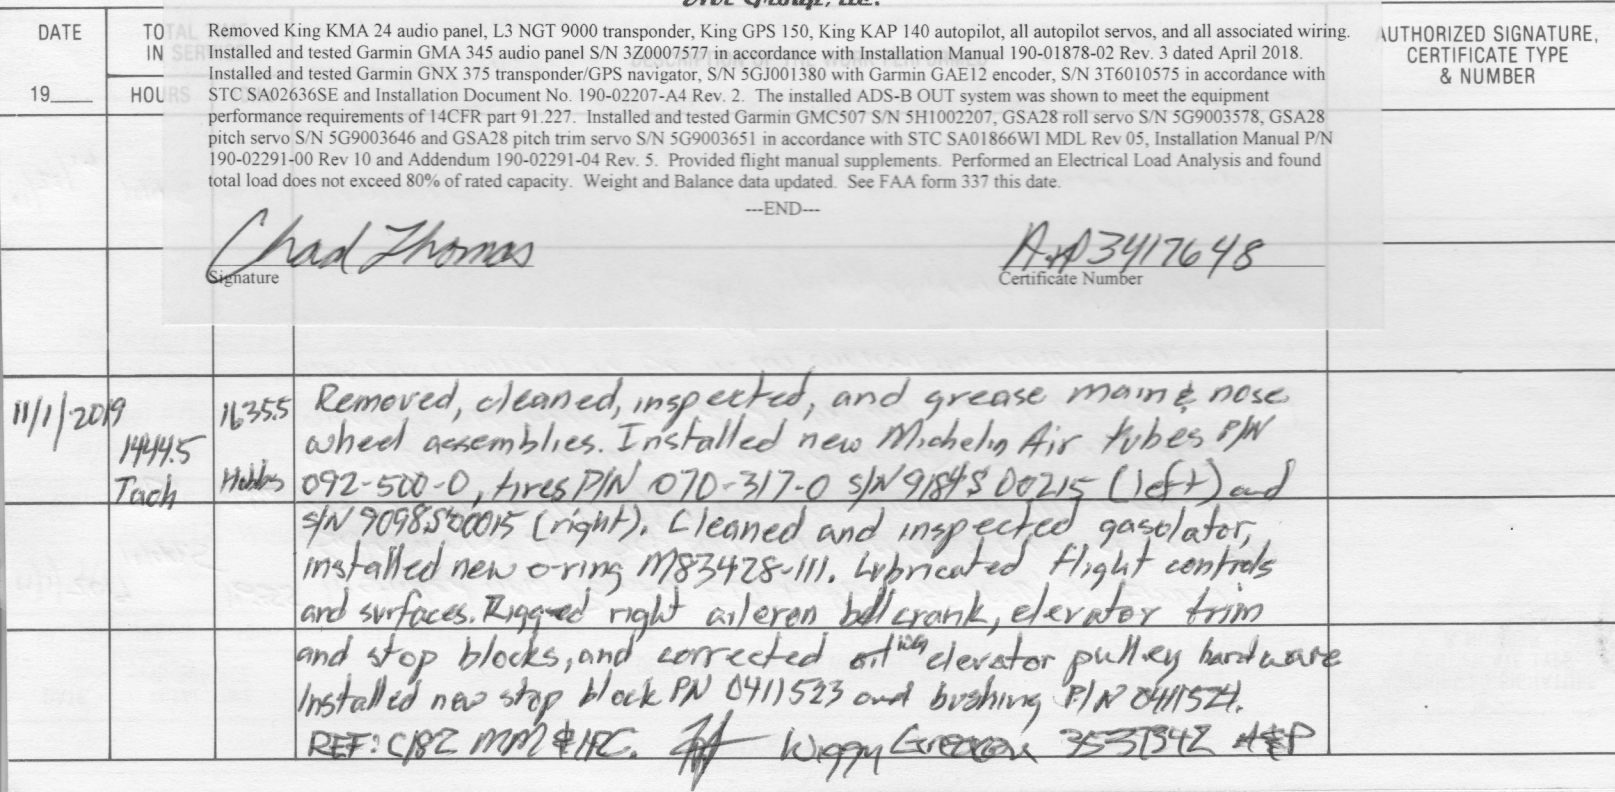 Removed King KMA 24 audio panel, L3 NGT 9000 transponder, King GPS 150, King KAP 140 autopilot, all autopilot servos, and all associated wiring.
Installed and tested Garmin GMA 345 audio panel S/N 3Z0007577 in accordance with Installation Manual 190-01878-02 Rev. 3 dated April 2018.
Installed and tested Garmin GNX 375 transponder/GPS navigator, S/N 5GJ001380 with Garmin GAE12 encoder, S/N 3T6010575 in accordance with
STC SA02636SE and Installation Document No. 190-02207-A4 Rev. 2. The installed ADS-B OUT system was shown to meet the equipment
performance requirements of 14CFR part 91.227. Installed and tested Garmin GMC507 S/N 5H1002207, GSA28 roll servo S/N 5G9003578, GSA28
pitch servo S/N 5G9003646 and GSA28 pitch trim servo S/N 5G9003651 in accordance with STC SA01866WI MDL Rev 05, Installation Manual P/N
190-02291-00 Rev 10 and Addendum 190-02291-04 Rev. 5. Provided flight manual supplements. Performed an Electrical Load Analysis and found
total load does not exceed 80% of rated capacity. Weight and Balance data updated. See FAA form 337 this date.
---END---
Chad Thomas
A&P 3417648
Signature
Certificate Number
DATE
19
TOTAL
IN SERVICE
HOURS
AUTHORIZED SIGNATURE,
CERTIFICATE TYPE
& NUMBER
11/1/2019
1444.5
Tach
1635.5
Hobbs
Removed, cleaned, inspected, and grease main & nose
wheel assemblies. Installed new Michelin Air tubes P/N
092-500-0, tires P/N 070-317-0 S/N 9184S00215 (left) and
S/N 9098S00015 (right). Cleaned and inspected gasolator,
installed new o-ring M83428-111. Lubricated flight controls
and surfaces. Rigged right aileron bellcrank, elevator trim
and stop blocks, and corrected elevator pulley hardware
Installed new stop block PN 0411523 and bushing P/N 0411524.
REF: C182 MM & IPC. Wiggy A&P